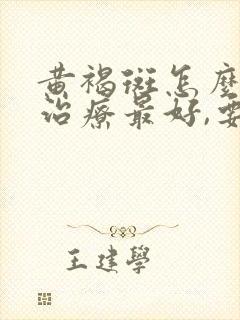 黄褐斑怎麼
治療最好,要
王建學